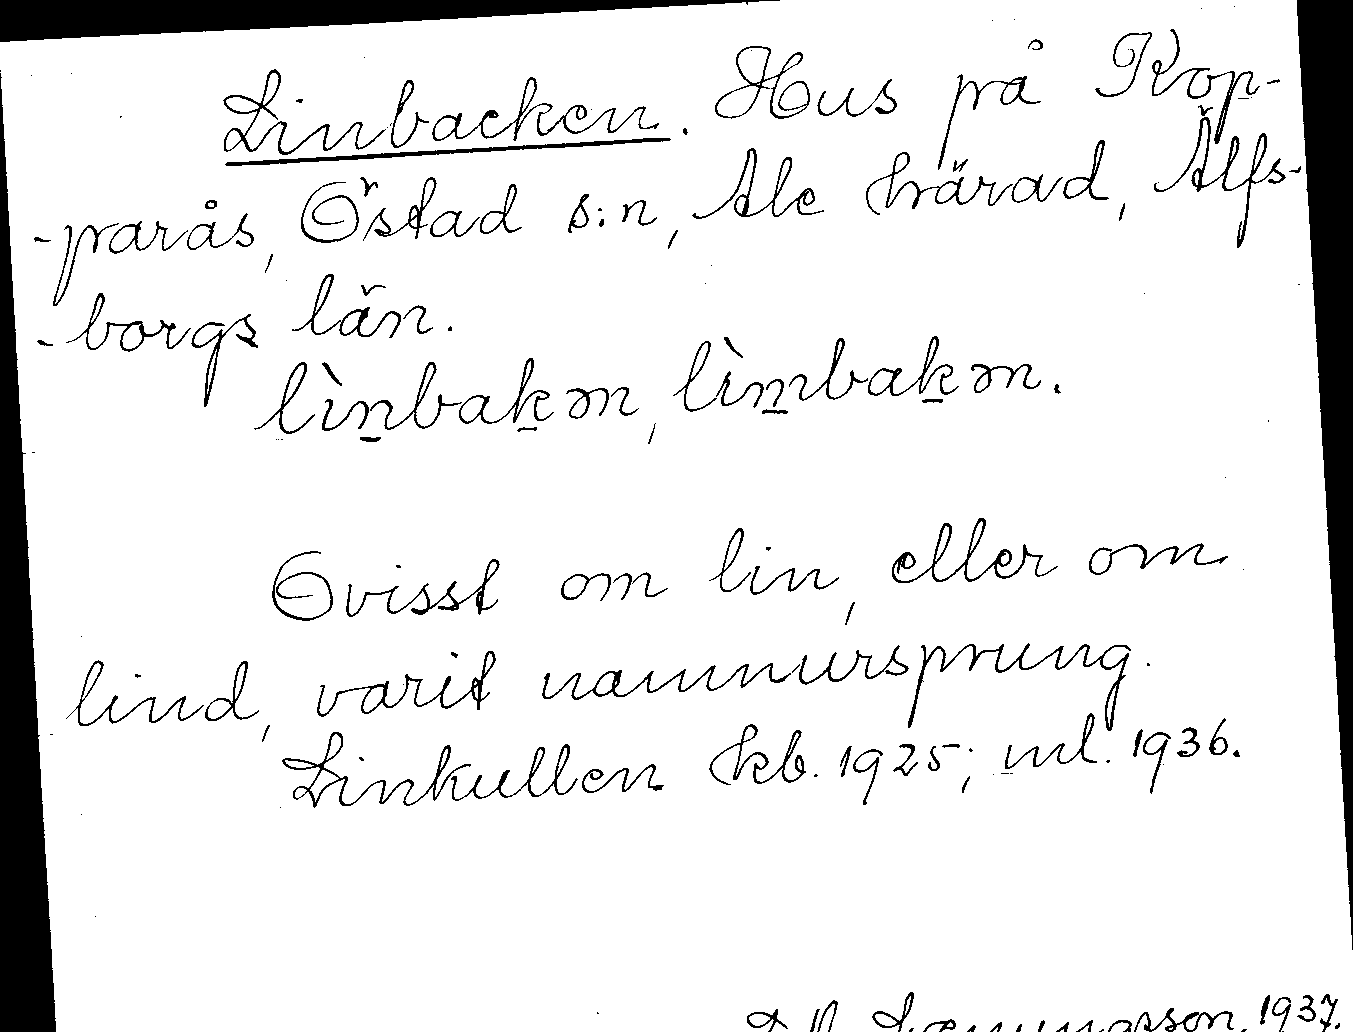 Linbacken. Hus på Kop-
-parås, Östad s:n, Ale härad, Älfs-
-borgs län.
lìn̠bak̠ən, lìm̠bak̠ən.
Ovisst om lin, eller om
lind, varit namnursprung.
Linkullen kb. 1925; ml. 1936.
1937.